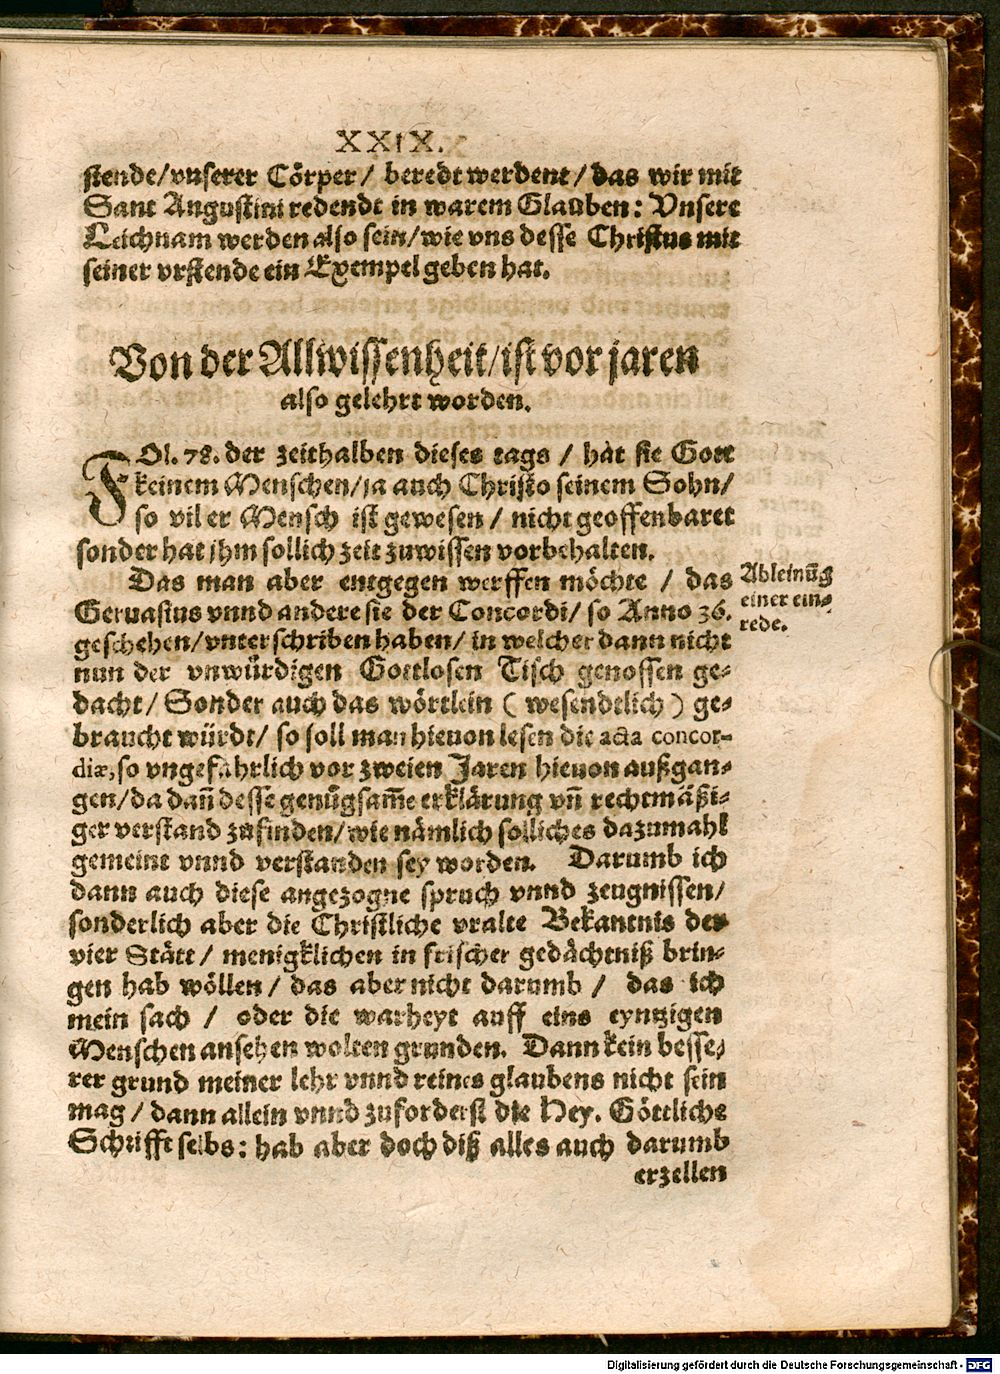 XXIX.
stende/vnserer Cörper/ beredt werdent/ das wir mit
Sant Augustini redendt in warem Glauben: Vnsere
Leichnam werden also sein/wie vns desse Christus mit
seiner vrstende ein Exempel geben hat.
Von der Allwissenheit/ist vor jaren
also gelehrt worden.
FOl. 78. der zeithalben dieses tags / hat sie Gott
keinem Menschen/ja auch Christo seinem Sohn/
so vil er Mensch ist gewesen / nicht geoffenbaret
sonder hat jhm sollich zeit zuwissen vorbehalten.
Das man aber entgegen werffen möchte / das
Geruasius vnnd andere sie der Concordi/ so Anno 36.
geschehen/vnterschriben haben/ in welcher dann nicht
nun der vnwürdigen Gottlosen Tisch genossen ge-
dacht/ Sonder auch das wörtlein ( wesendtlich ) ge-
braucht würdt/ so soll man hieuon lesen die acta concor-
diæ, so vngefährlich vor zweien Jaren hieuon außgan-
gen/da dañ desse genůgsam̃e erklärung vñ rechtmäßi-
ger verstand zufinden/wie nämlich solliches dazumahl
gemeint vnnd verstanden sey worden. Darumb ich
dann auch diese angezogne spruch vnnd zeugnissen/
sonderlich aber die Christliche vralte Bekantnis der
vier Stätt/ menigklichen in frischer gedächtniß brin-
gen hab wöllen/ das aber nicht darumb / das ich
mein sach / oder die warheyt auff eins eyntzigen
Menschen ansehen wolten grunden. Dann kein besse-
rer grund meiner lehr vnnd reines glaubens nicht sein
mag/ dann allein vnnd zuforderst die Hey. Göttliche
Schrifft selbs: hab aber doch diß alles auch darumb
erzellen
Ableinũg
einer ein-
rede.
Digitalisierung gefördert durch die Deutsche Forschungsgemeinschaft - DFG